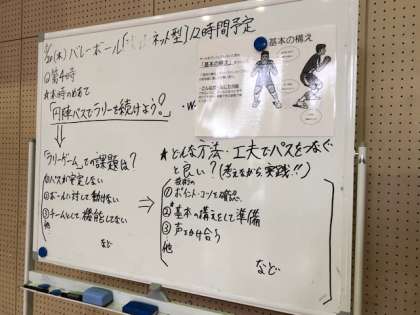 (木) バレーボール「ネット型」12時間予定
◎第4時
☆本時のめあて
「円陣パスでラリーを続けよう!」
「ラリーゲーム」での課題は?
①パスが安定しない
②ボールに対して動けない
③チームとして機能してない
他
など
★どんな方法・工夫でパスをつなぐ
と良い?(考えながら、実践!!)
①ポイント・コツを確認
②基本の構えをして準備
③声をかけ合う
他
など
「基本の構え」
基本の構え